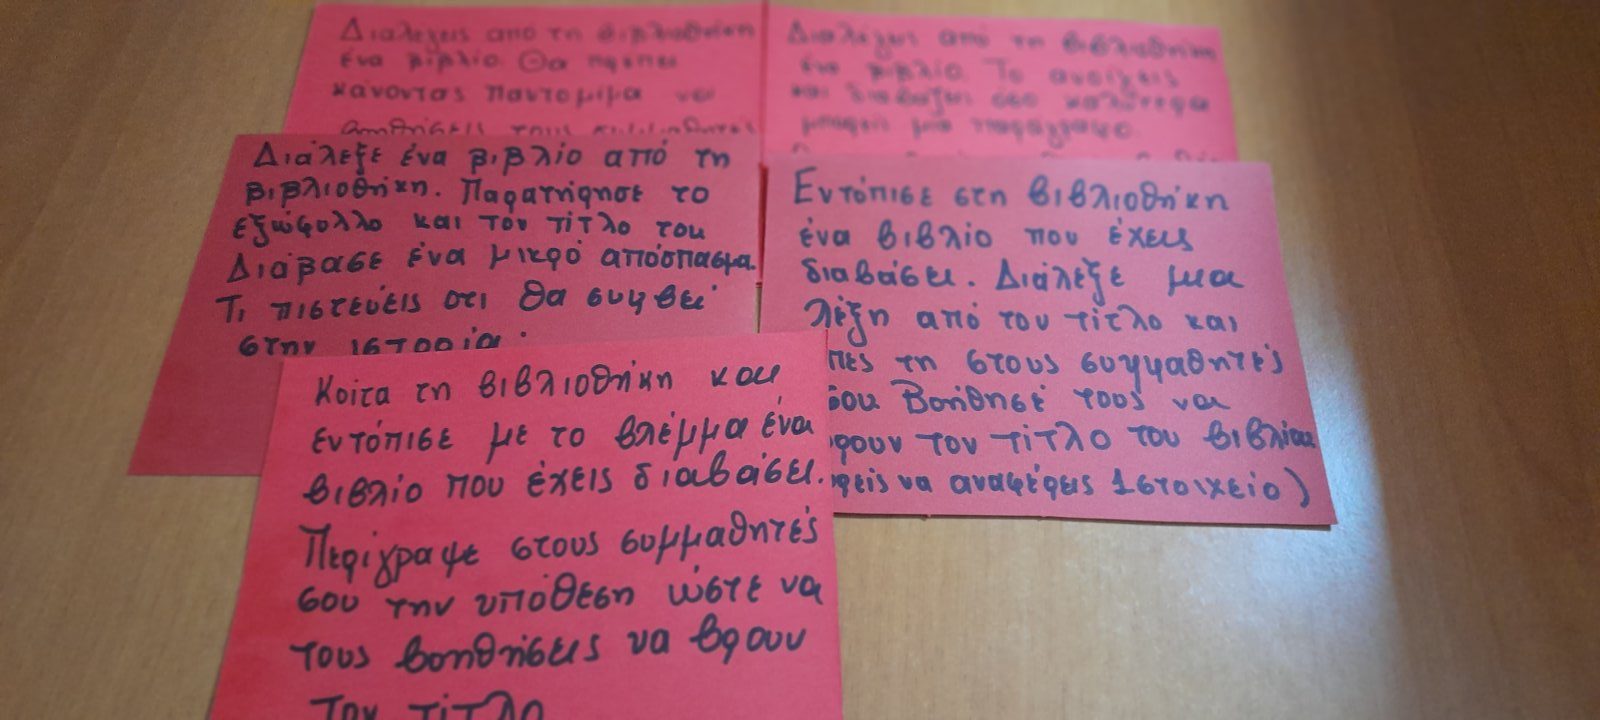 Διαλέγεις από τη βιβλιοθήκη
ένα βιβλίο. Θα πρέπει
κάνοντας παντομίμα να
βοηθήσεις τους συμμαθητές
Διαλέγεις από τη βιβλιοθήκη
ένα βιβλίο. Το ανοίγεις
και διαβάζεις όσο καλύτερα
μπορείς μια παράγραφο.
Διάλεξε ένα βιβλίο από τη
βιβλιοθήκη. Παρατήρησε το
εξώφυλλο και τον τίτλο του
Διάβασε ένα μικρό απόσπασμα.
Τι πιστεύεις οτι θα συμβεί
στην ιστορία;
Εντόπισε στη βιβλιοθήκη
ένα βιβλίο που έχεις
διαβάσει. Διάλεξε μια
λέξη από τον τίτλο και
πες τη στους συμμαθητές
σου Βοήθησέ τους να
βρουν τον τίτλο του βιβλίου
να αναφέρεις 1 στοιχείο)
Κοίτα τη βιβλιοθήκη και
εντόπισε με το βλέμμα ένα
βιβλίο που έχεις διαβάσει.
Περίγραψε στους συμμαθητές
σου την υπόθεση ώστε να
τους βοηθήσεις να βρουν
τον τίτλο